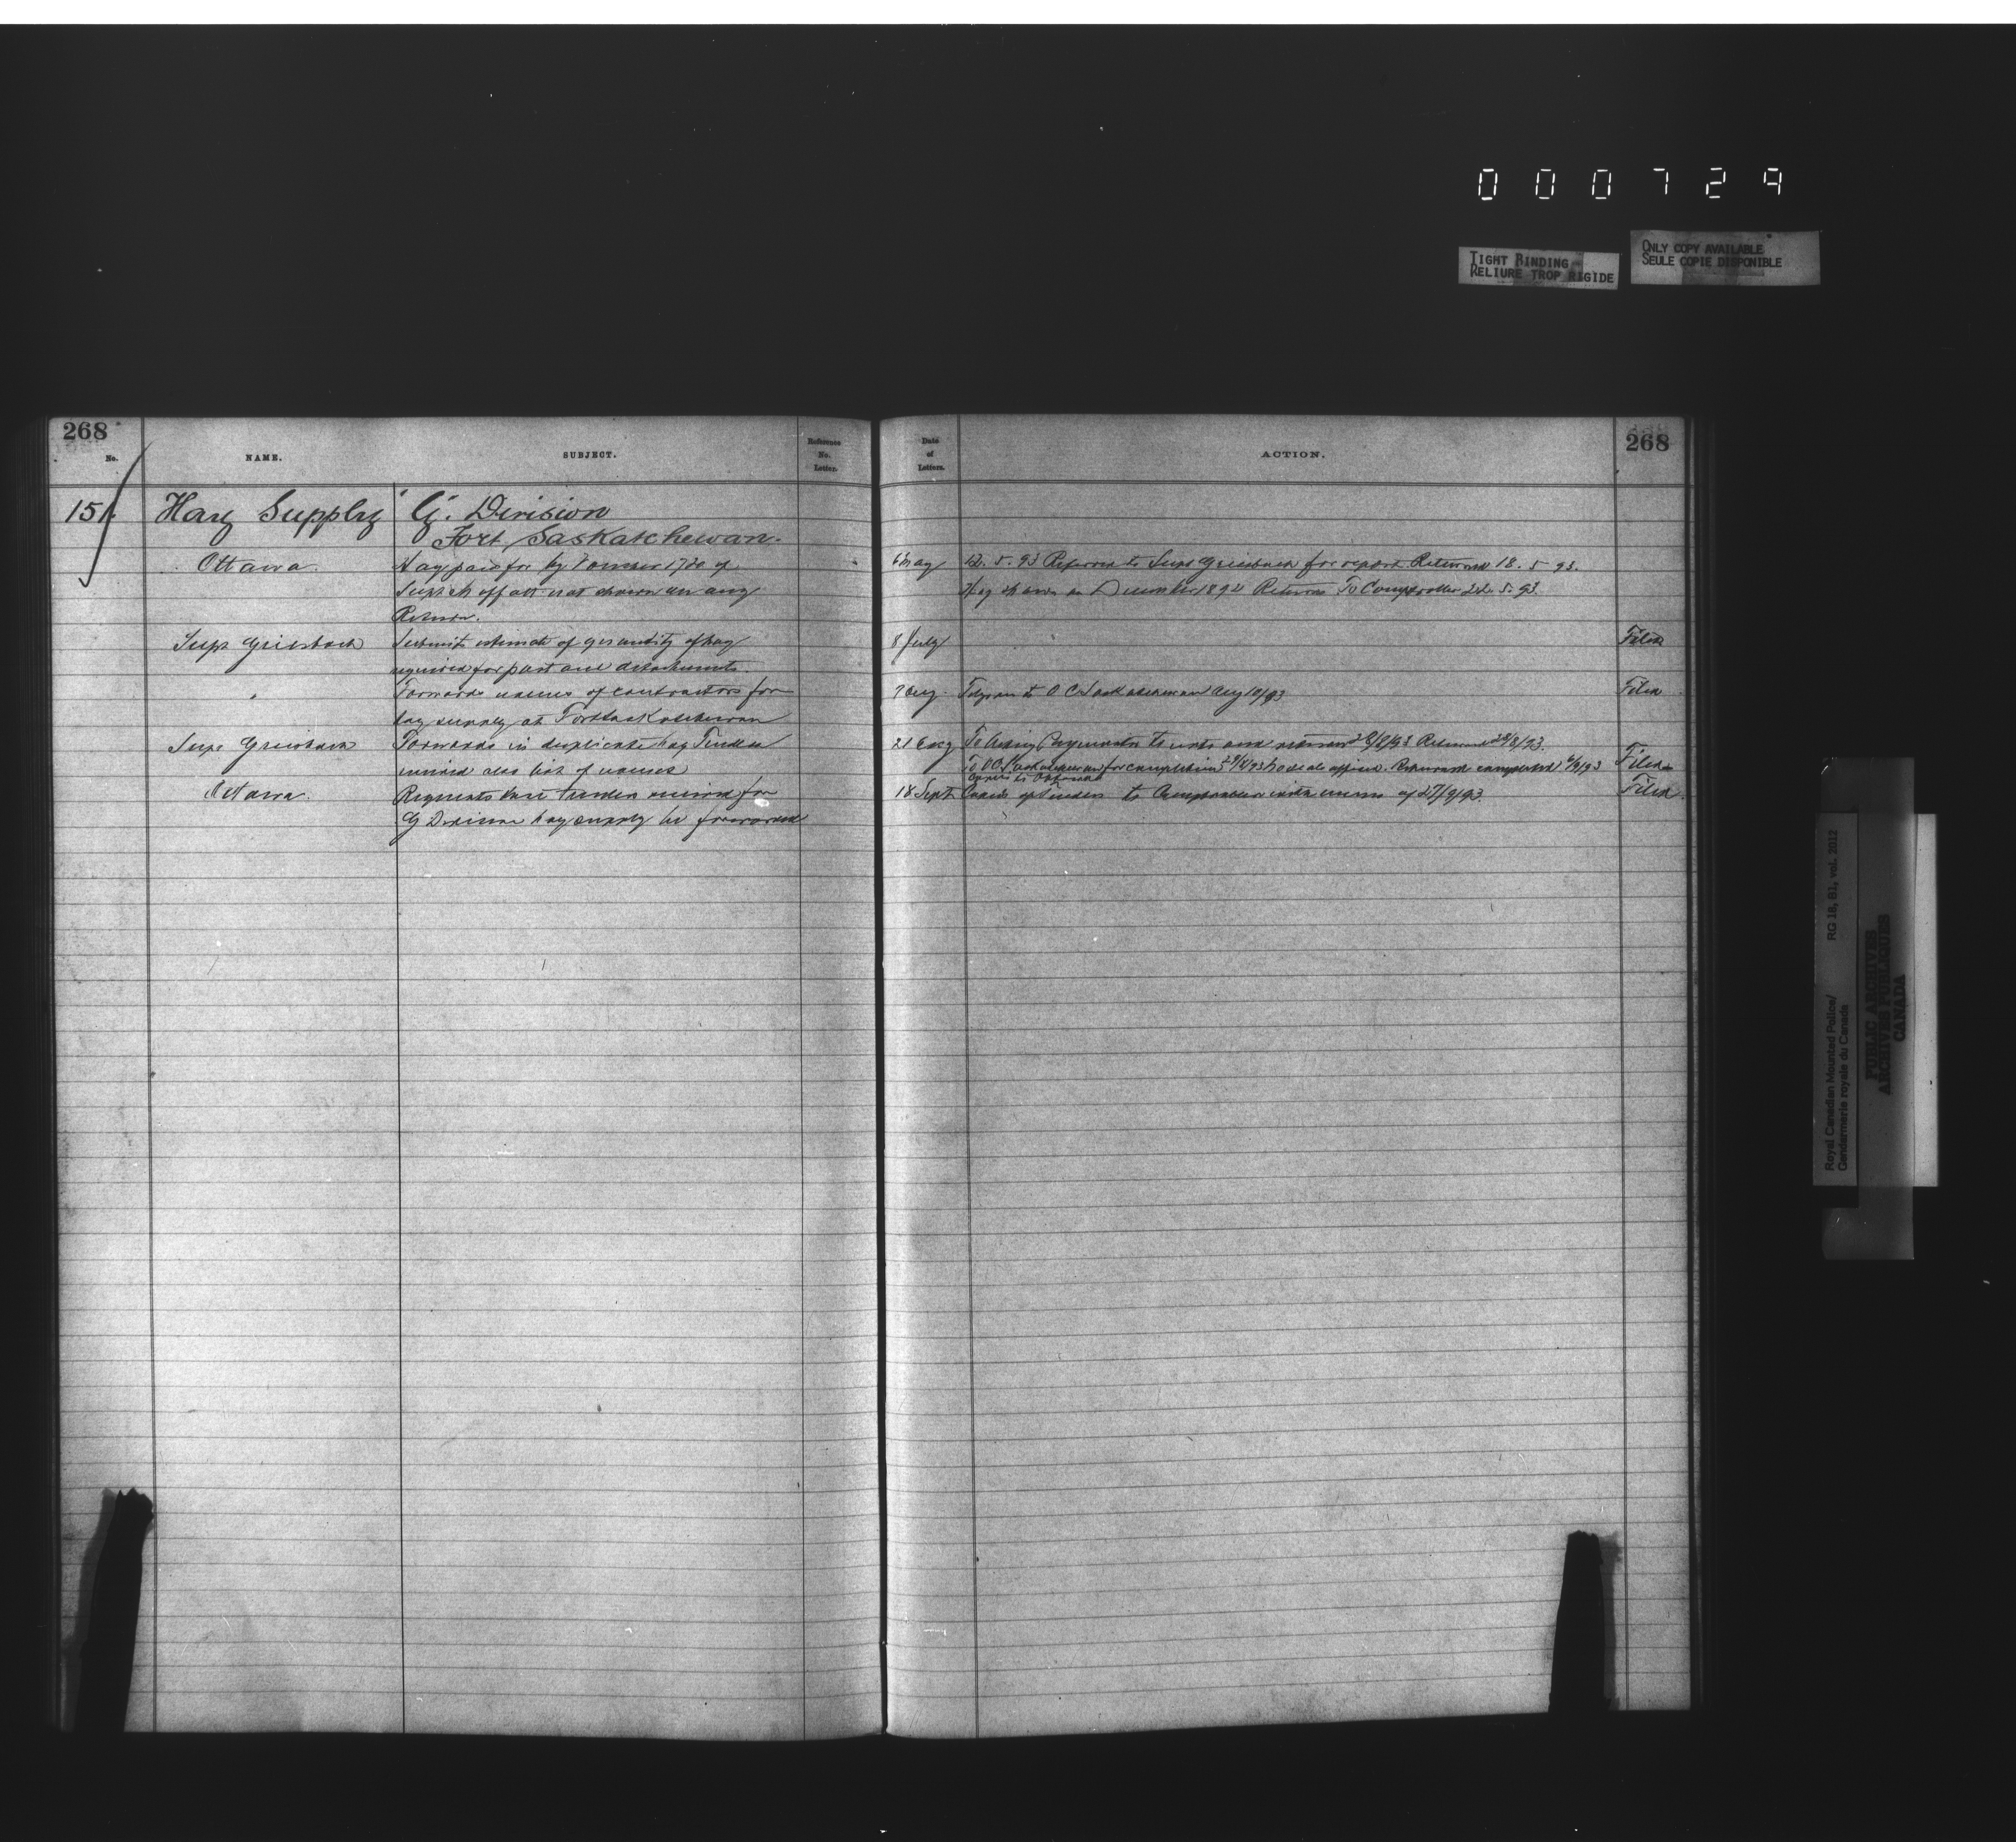 000729
TIGHT BINDING
RELIURE TROP RIGIDE
ONLY COPY AVAILABLE
SEULE COPIE DISPONIBLE
268
No.
NAME.
SUBJECT.
Reference
No.
Letter.
Date
of
Letters.
ACTION.
268
151. Hay Supply "G". Division
Fort Saskatchewan.
Ottawa Hay paid for by Voucher 1720 of
6 May 12. 5. 93 Referred to Supt Griesbach for report. Returned 18. 5 93.
not shown on any
Hay shown on December 1892 Return To Comptroller 22. 5. 93.
Return.
Supt Griesbach Submits estimate of quantity of hay
8 July Filed
required for post and detachments.
" Forwards names of contractors for
7 Aug. Telegram to O C Saskatchewan Aug 10/93 Filed
hay supply at Fort Saskatchewan
Supt Griesbach Forwards in duplicate hay Tender
21 Aug To Acting Paymaster to note and return 28/8/93 Returned 28/8/93.
received also list of names
To OC Saskatchewan for completion 29/8/93 Returned completed 6/9/93 Filed
Copies to Ottawa
Ottawa. Requests that tender received for
18 Sept Copies of Tenders to Comptroller with memo of 27/9/93. Filed
G Division hay supply be forwarded
Royal Canadian Mounted Police/ RG 18, B1, vol. 2012
Gendarmerie royale du Canada
PUBLIC ARCHIVES
ARCHIVES PUBLIQUES
CANADA